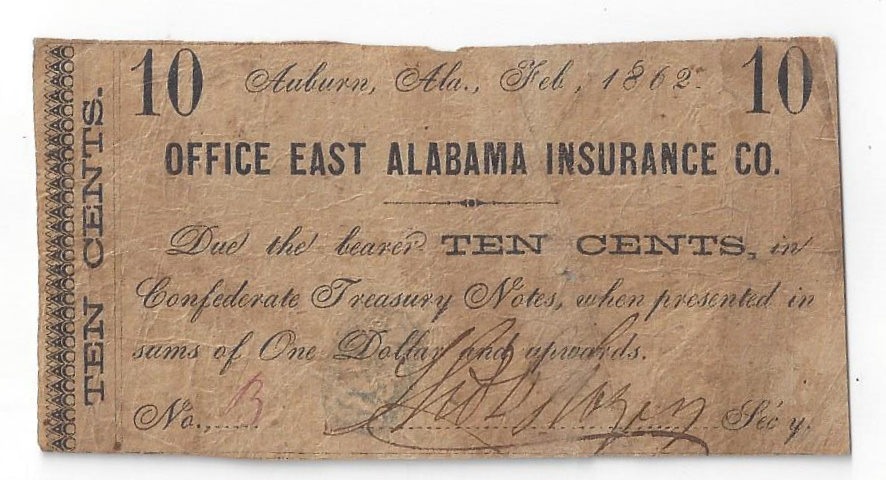 TEN CENTS.
10 Auburn, Ala., Feb, 1862. 10
OFFICE EAST ALABAMA INSURANCE CO.
Due the bearer TEN CENTS, in
Confederate Treasury Notes, when presented in
sums of One Dollar and upwards.
No., B Sec'y.